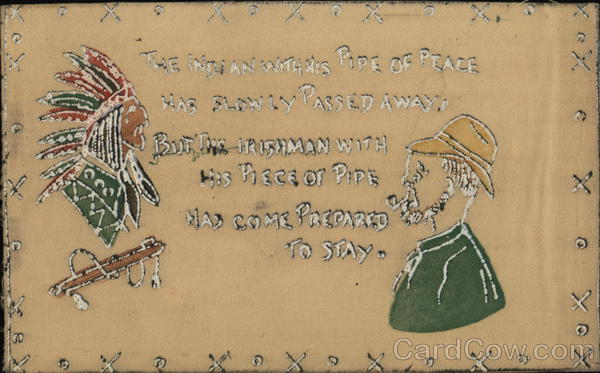 THE INDIAN WITH HIS PIPE OF PEACE
HAS SLOWLY PASSED AWAY.
BUT THE IRISHMAN WITH
HIS PIECE OF PIPE
HAS COME PREPARED
TO STAY.
CardCow.com